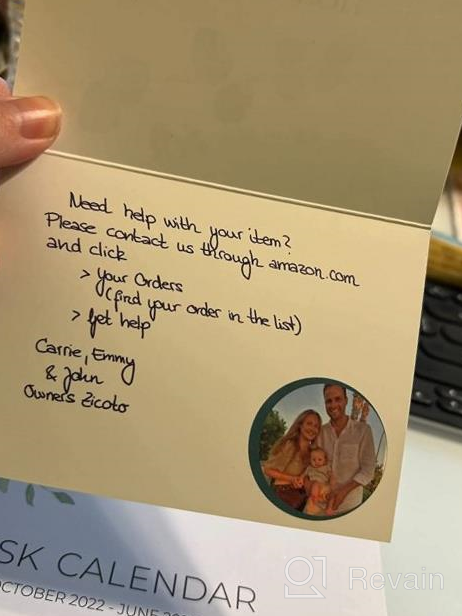 Need help with your item?
Please contact us through amazon.com
and click
> Your Orders
(find your order in the list)
> Get help
Carrie, Emmy
& John
Owners Zicoto
SK CALENDAR
OCTOBER 2022 - JUNE
Revain